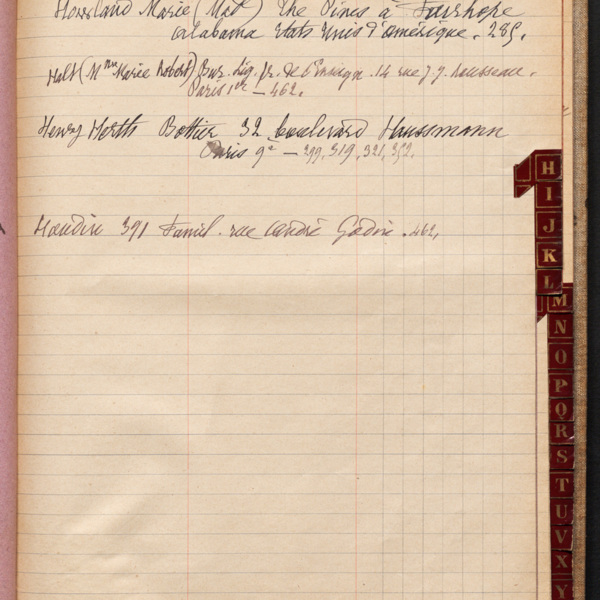 Howland Marie (Mad) The Pines à Fairhope
Alabama Etats Unis d'Amérique. 285.
Holt (Mme Marie Robert) Bur. Lig. fr. de l'Enseign. 14 rue J. J. Rousseau.
Paris 1er — 462.
Henry Herth Bottier 32 boulevard Haussmann
Paris 9e — 299, 319, 321, 352.
391 Famil. rue André Godin. 462,
H
I
J
K
L
M
N
O
P
Q
R
S
T
U
V
X
Y